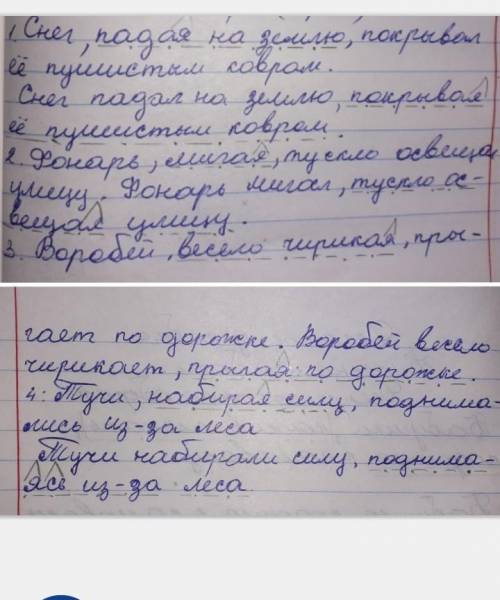 1. Снег, падая на землю, покрывал
её пушистым ковром.
Снег падал на землю, покрывая
её пушистым ковром.
2. Фонарь, мигая, тускло освещал
улицу. Фонарь мигал, тускло ос-
вещая улицу.
3. Воробей, весело чирикая, пры-
гает по дорожке. Воробей весело
чирикает, прыгая по дорожке.
4. Тучи, набирая силу, поднима-
лись из-за леса
Тучи набирали силу, поднима-
ясь из-за леса